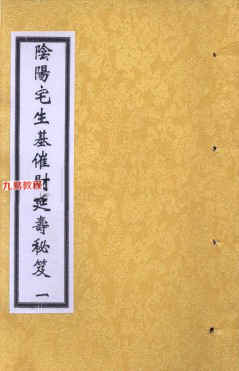 陰陽宅生基催財延壽秘笈 一
九易教程